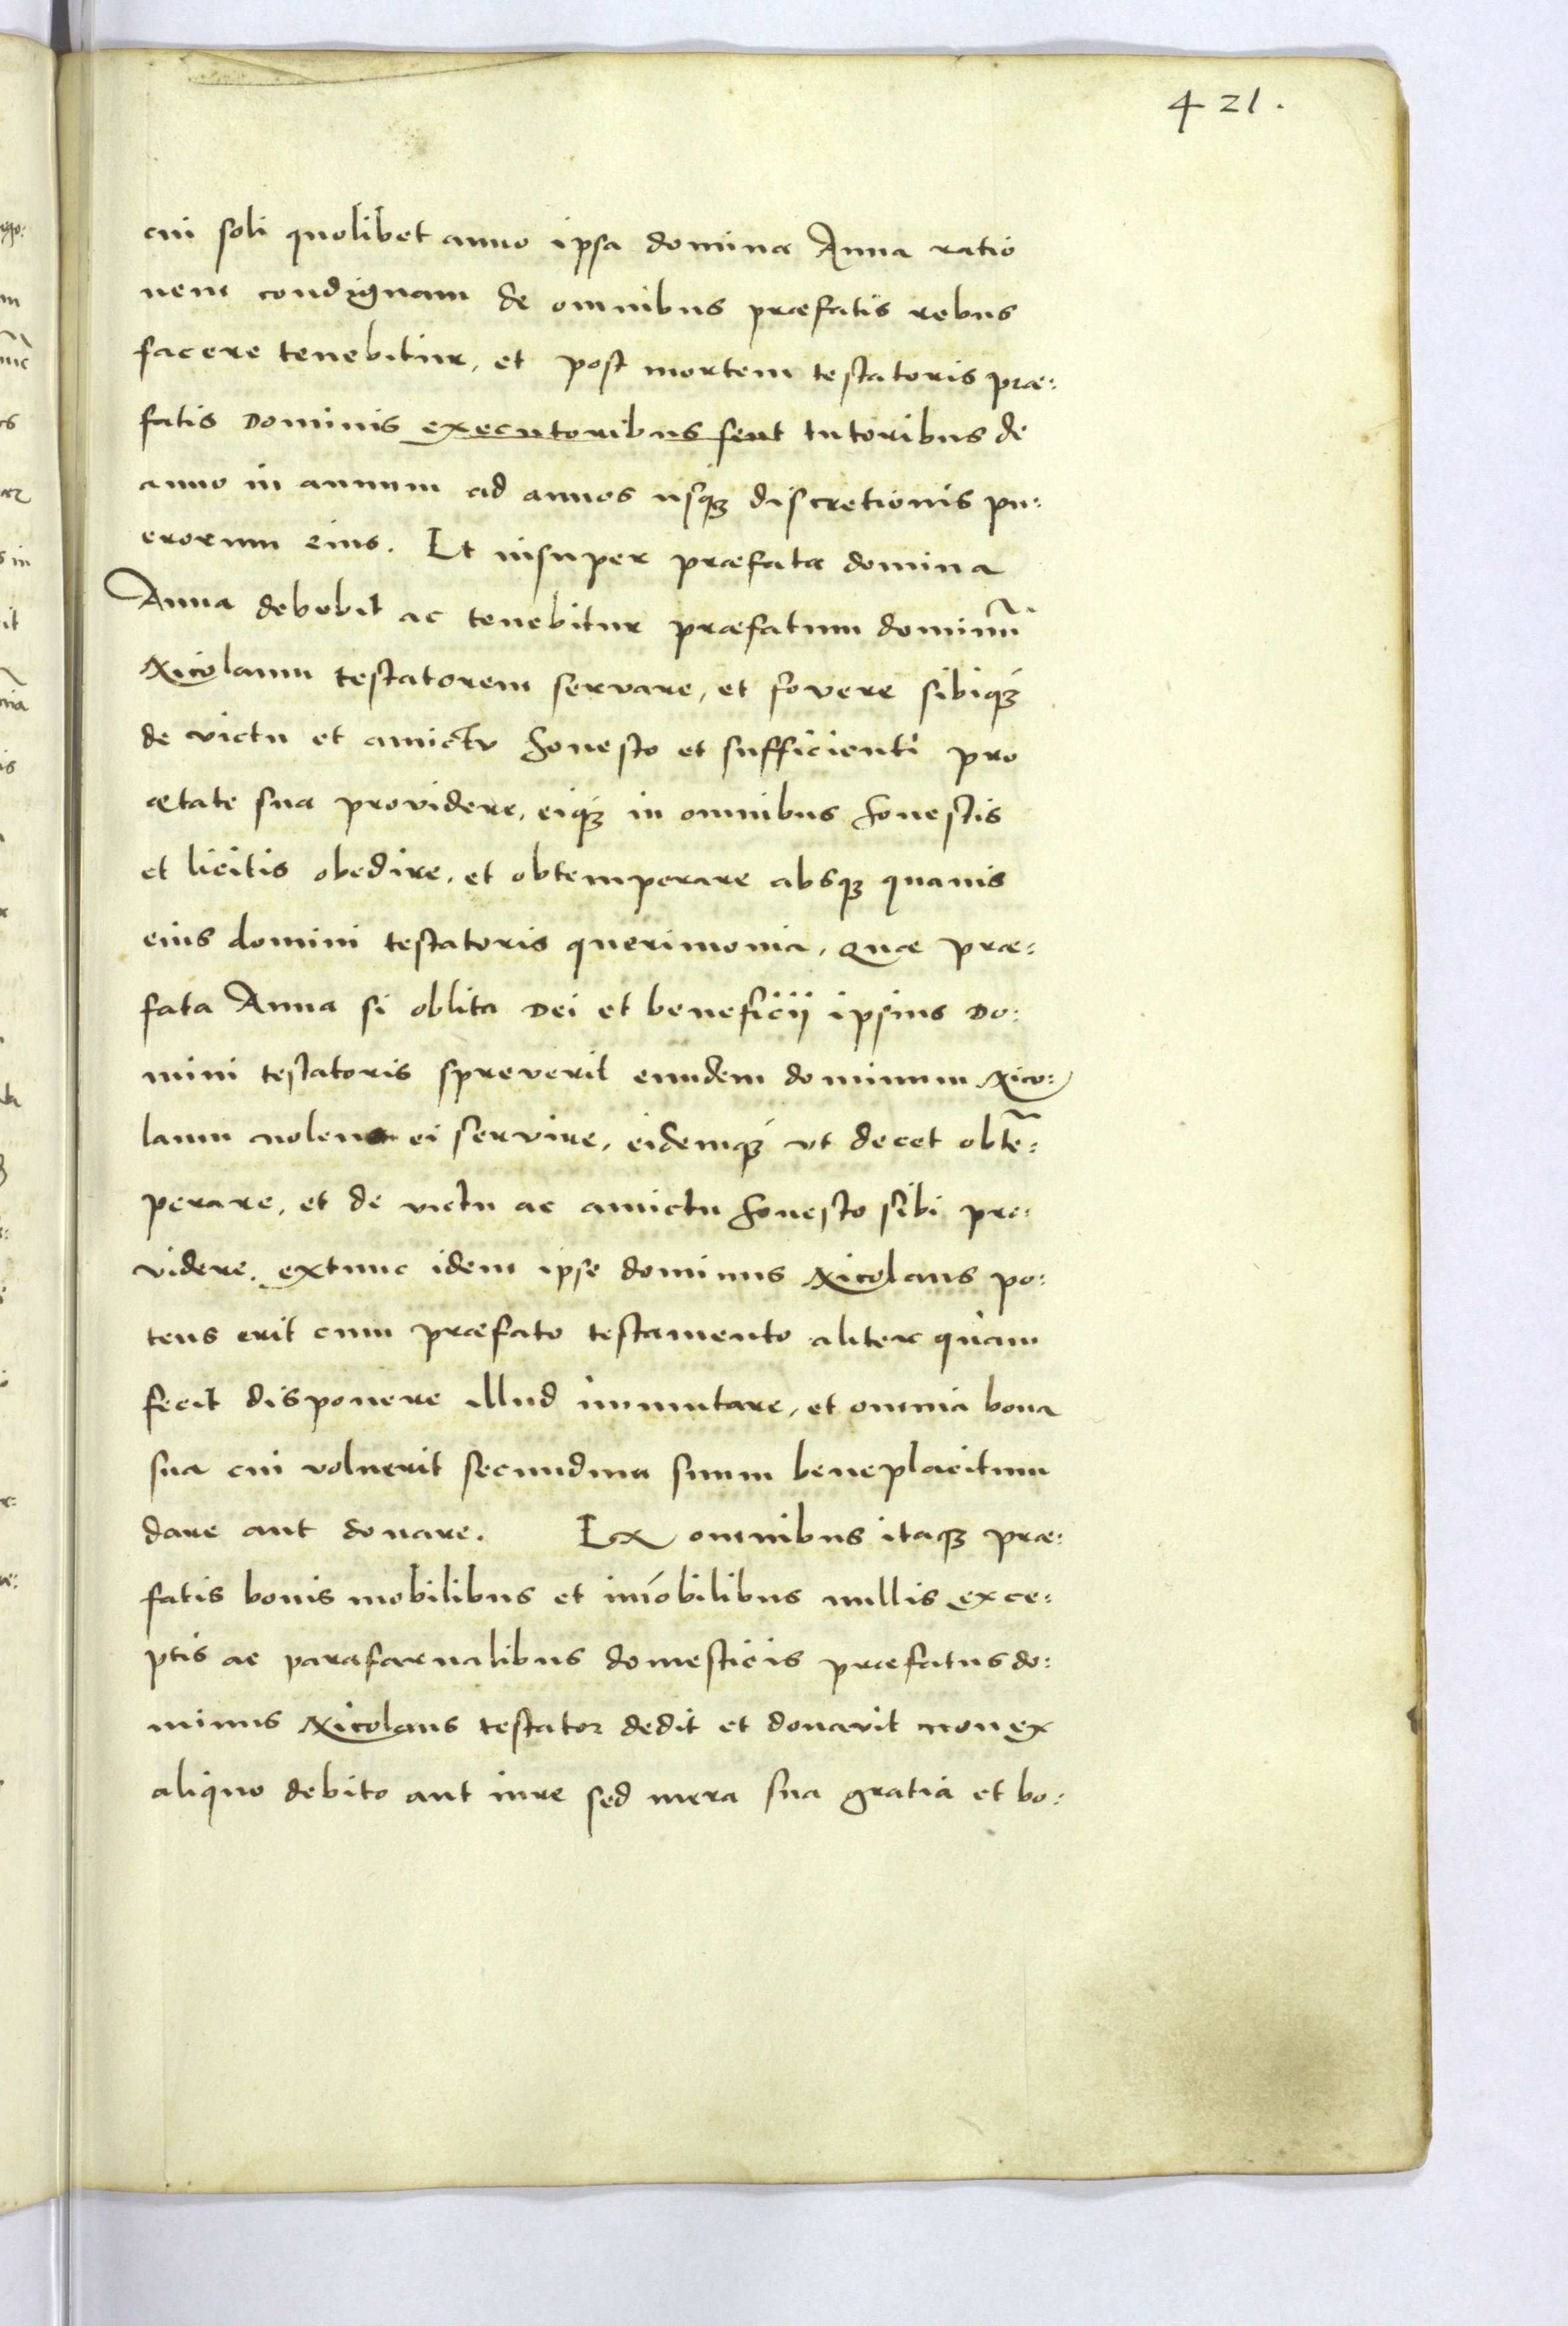 421.
cui soli quolibet anno ipsa domina Anna ratio
nem condignam de omnibus præfatis rebus
facere tenebitur, et post mortem testatoris præ:
fatis Dominis executoribus seut tutoribus de
anno in annum ad annos usq₃ discretionis pu:
erorum eius. Et insuper præfata domina
Anna debebit ac tenebitur præfatum dominū
Nicolaum testatorem servare, et fovere sibiq₃
de victu et amictv honesto et sufficienti pro
ætate sua providere, eiq₃ in omnibus honestis
et licitis obedire, et obtemperare absq₃ quavis
eius domini testatoris querimonia, Quæ præ:
fata Anna si oblita Dei et beneficij ipsius Do:
mini testatoris spreverit eundem dominum Nico:
laum nolens ei servire, eidemq₃ vt decet obtē:
perare, et de victu ac amictu honesto sibi pro:
videre, extunc idem ipse dominus Nicolaus po:
tens erit cum præfato testamento aliter quàm
fecit disponere illud immutare, et omnia bona
sua cui voluerit secundum suum beneplacitum
dare aut donare. Ex omnibus itaq₃ præ:
fatis bonis mobilibus et im̄obilibus nullis exce:
ptis ac parafarnalibus domesticis præfatus do:
minus Nicolaus testator dedit et donavit non ex
aliquo debito aut iure sed mera sua gratia et bo: